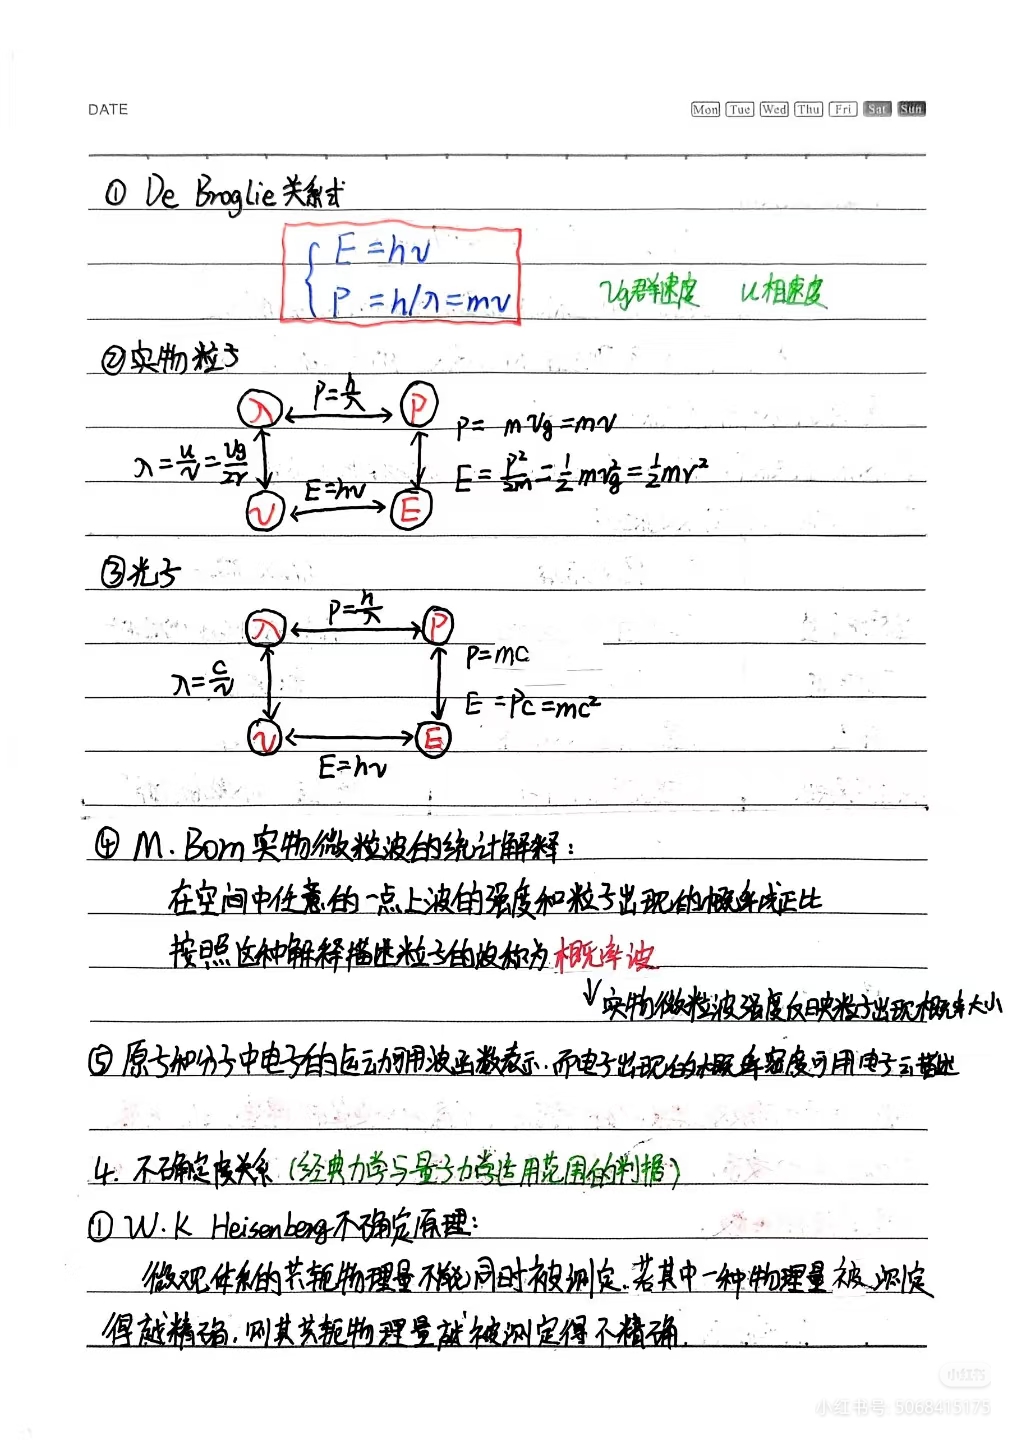 DATE
Mon Tue Wed Thu Fri Sat Sun
① De Broglie 关系式
E = hν
P = h/λ = mv
vg群速度 u相速度
②实物粒子
λ P=h/λ P
P = m vg = mv
λ = u/ν = vg/2ν
E = P²/2m = 1/2 mvg² = 1/2 mv²
ν E=hν E
③光子
λ P=h/λ P
P=mc
λ=c/ν
E = Pc = mc²
ν E
E=hν
④ M. Born 实物微粒波的统计解释：
在空间中任意的一点上波的强度和粒子出现的概率成正比
按照这种解释描述粒子的波称为概率波
↓实物微粒波强度反映粒子出现概率大小
⑤ 原子和分子中电子的运动可用波函数表示.而电子出现的概率密度可用电子云描述
4. 不确定度关系（经典力学与量子力学适用范围的判据）
① W.K Heisenberg不确定原理：
微观体系的共轭物理量不能同时被测定.若其中一种物理量被测定
得越精确.则其共轭物理量就被测定得不精确.
小红书
小红书号: 5068415175